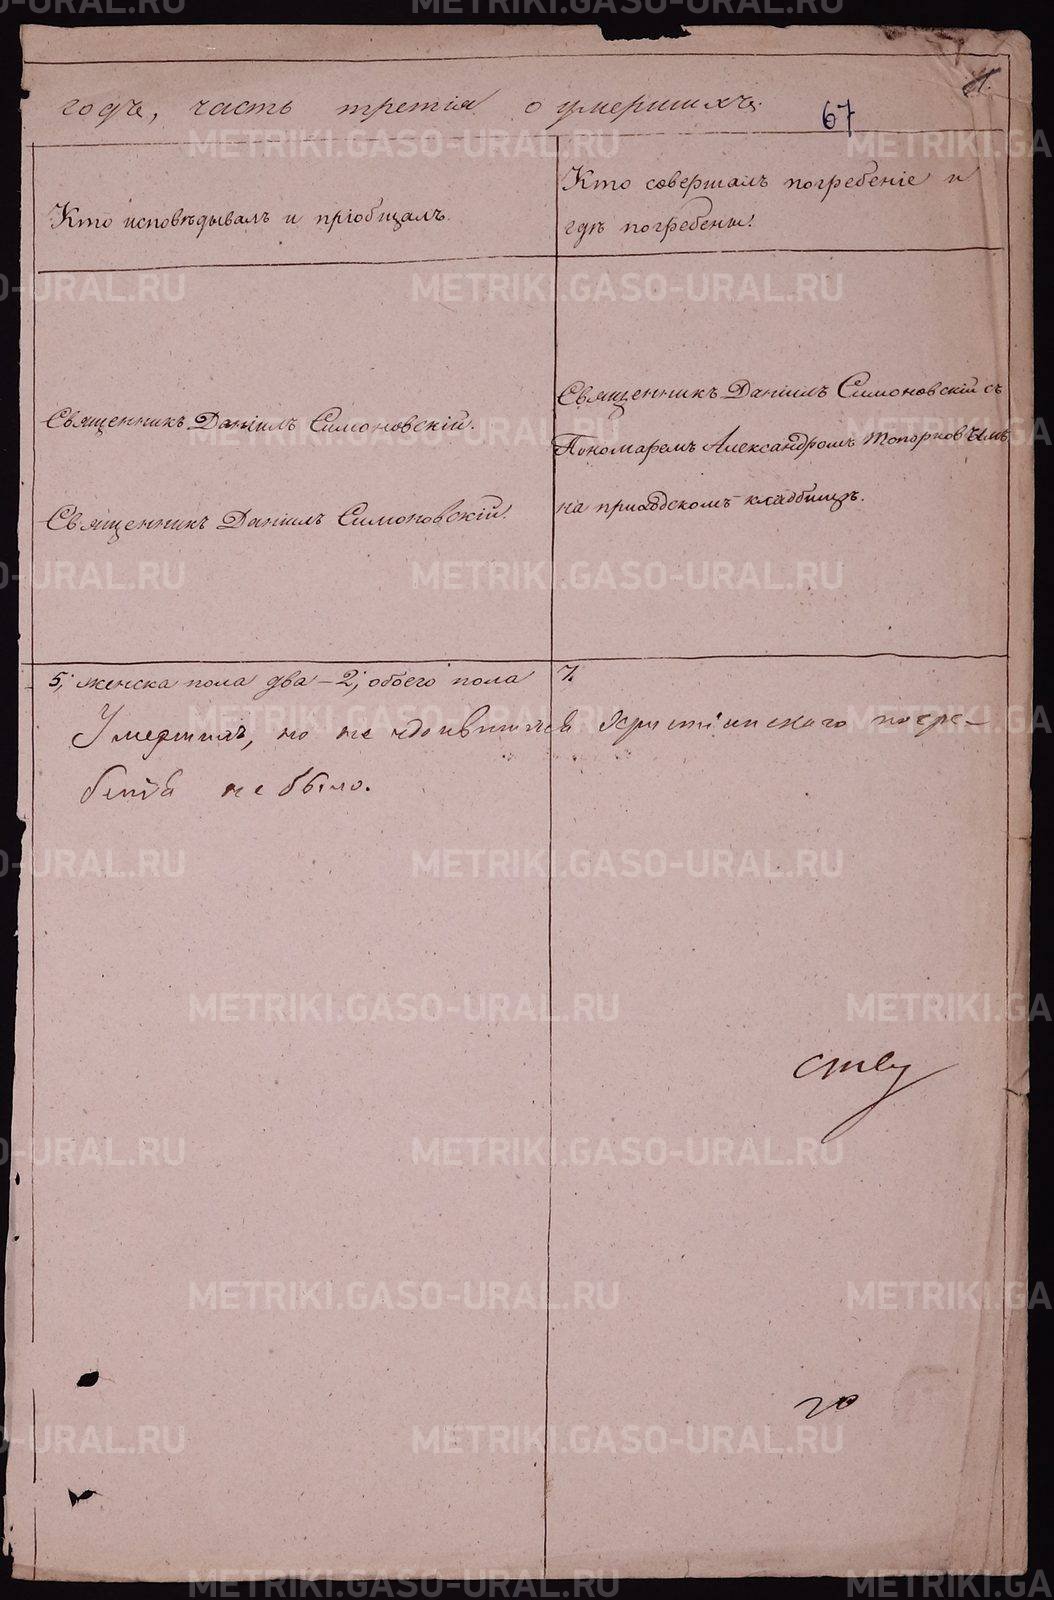 годъ, часть третія о умершихъ.
67
Кто исповѣдывалъ и пріобщалъ.
Кто совершалъ погребеніе и
гдѣ погребены.
Священникъ Даніилъ Симоновскій.
Священникъ Даніилъ Симоновскій.
Священникъ Даніилъ Симоновскій съ
Пономаремъ Александромъ Топорковымъ
на приходскомъ кладбищѣ.
5, женска пола два – 2, обоего пола 7.
Умершихъ, но не удоившихся христіанскаго погре-
бенія не было.
ству
го
METRIKI.GASO-URAL.RU